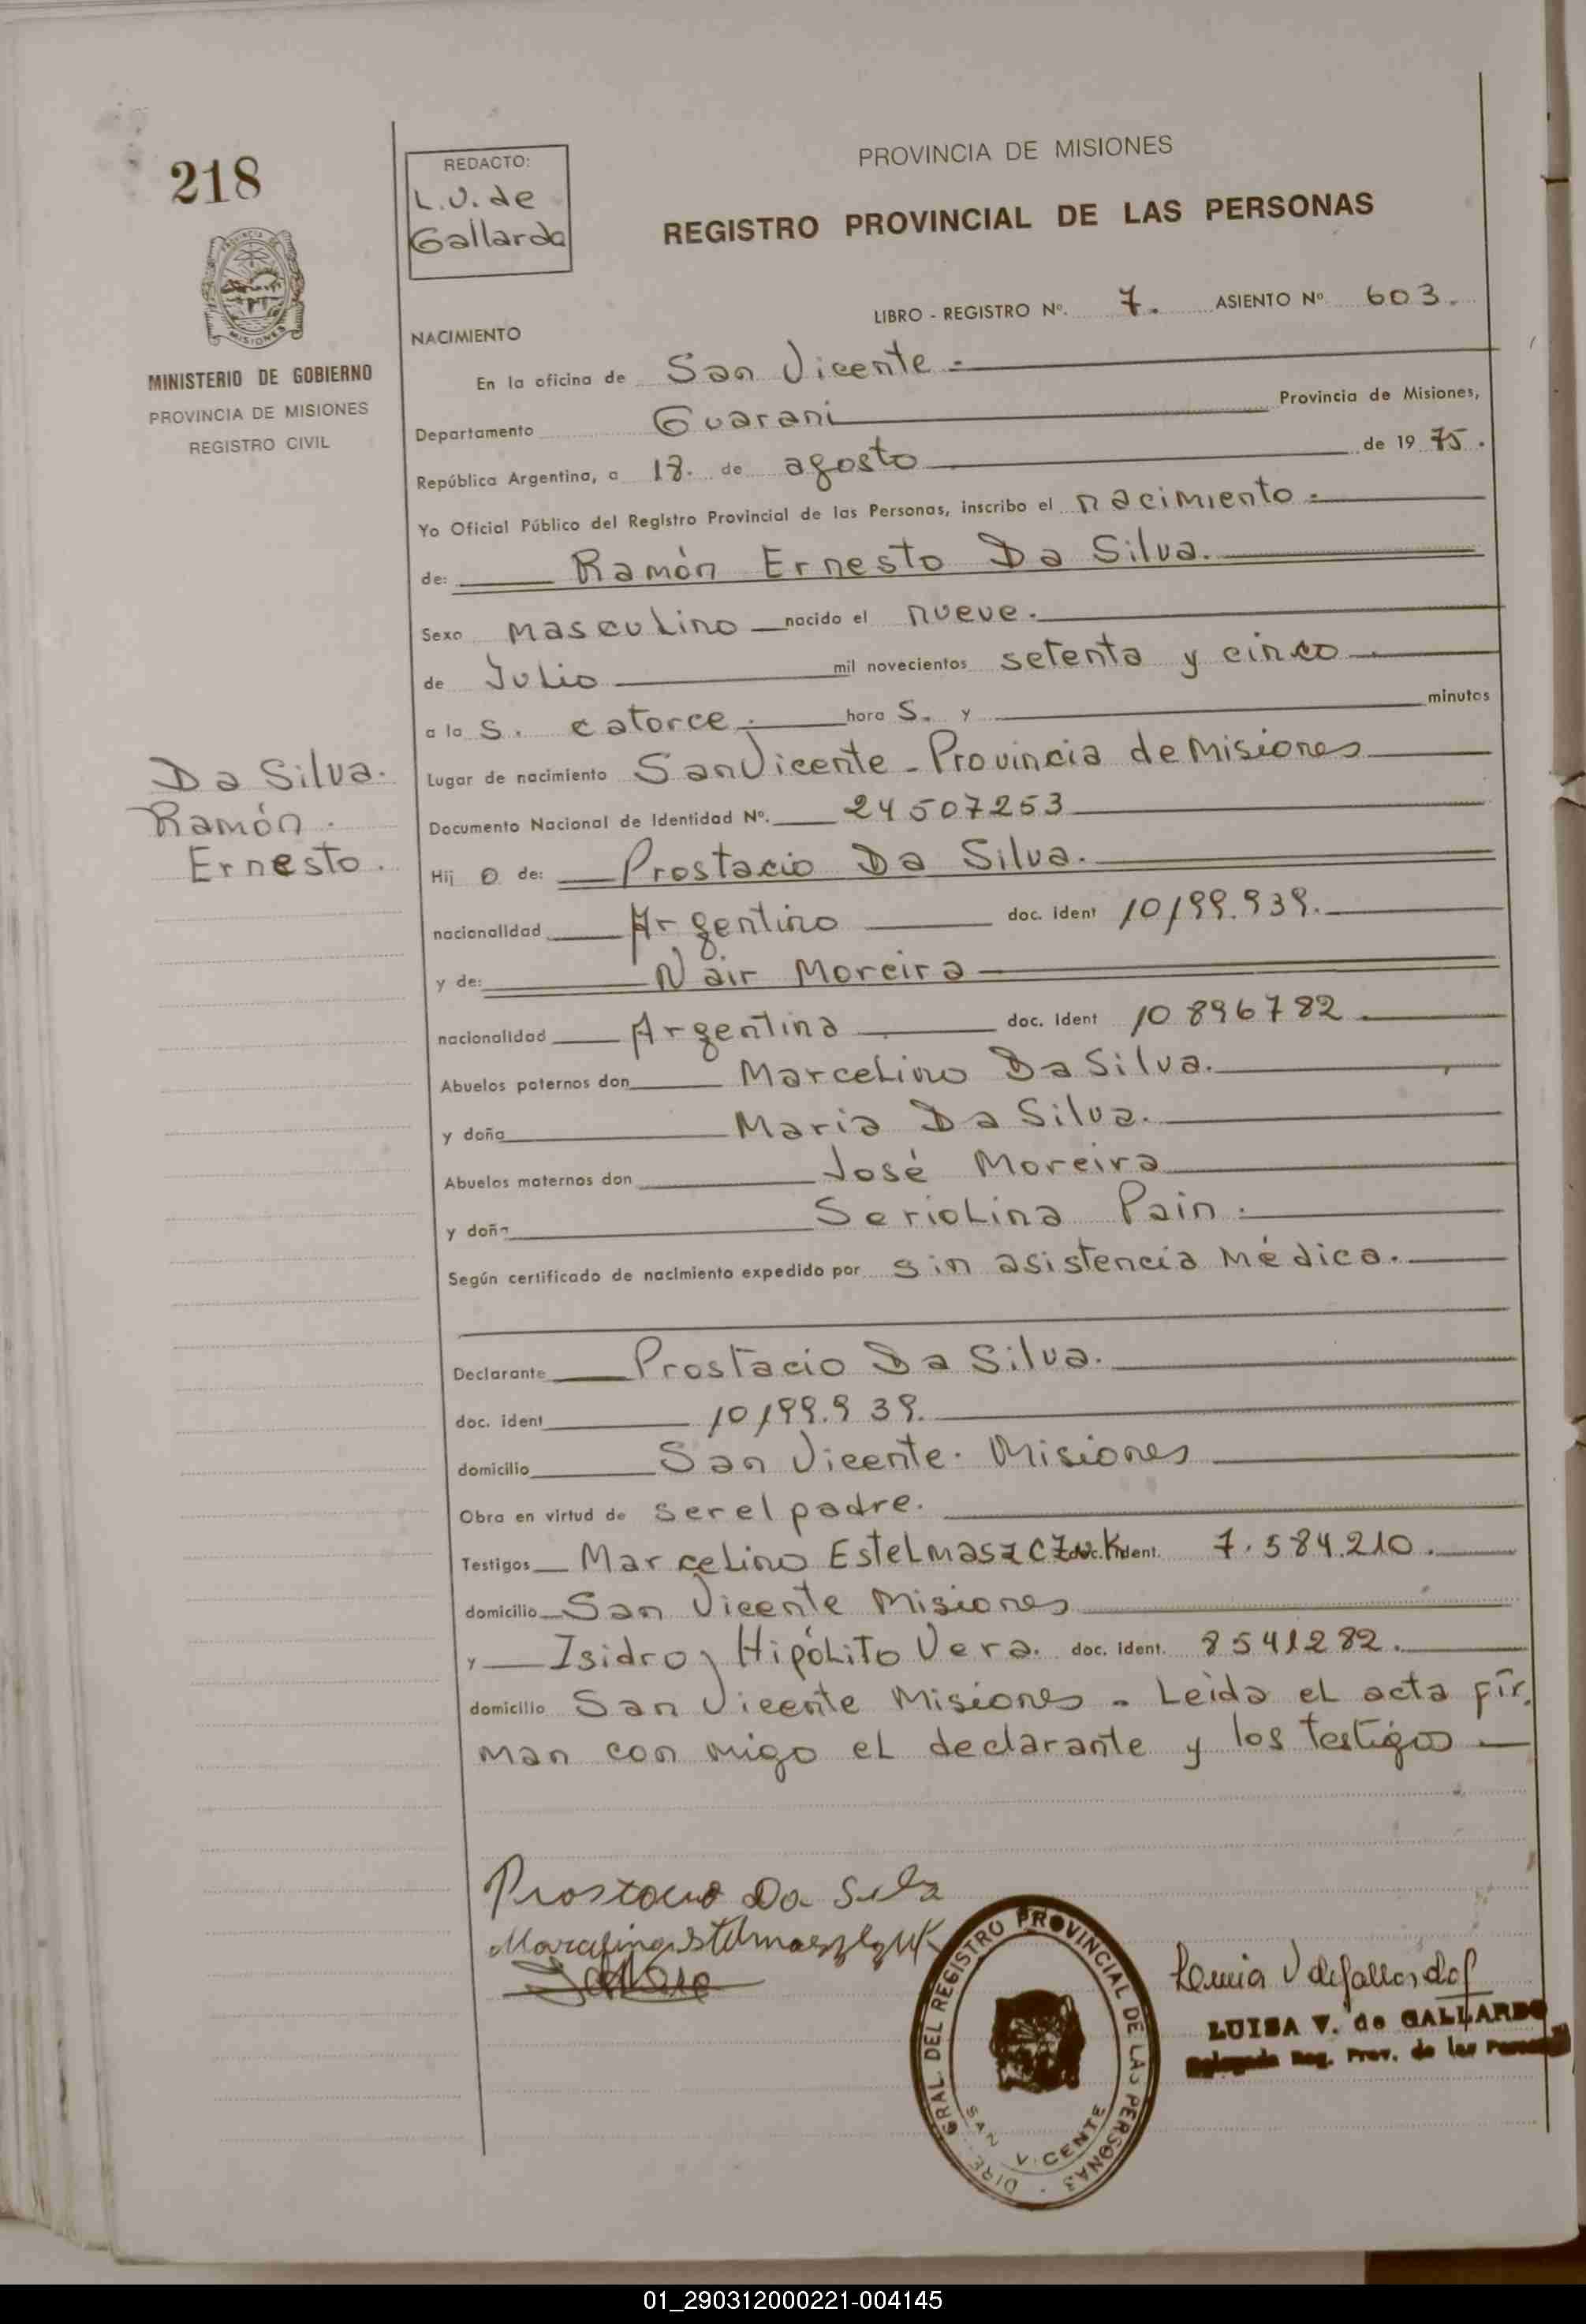 218
REDACTO:
L.V. de
Gallardo
PROVINCIA DE MISIONES
REGISTRO PROVINCIAL DE LAS PERSONAS
PROVINCIA DE
MISIONES
MINISTERIO DE GOBIERNO
PROVINCIA DE MISIONES
REGISTRO CIVIL
LIBRO - REGISTRO Nº. 7. ASIENTO Nº 603.
NACIMIENTO
En la oficina de San Vicente -
Departamento Guarani Provincia de Misiones,
República Argentina, a 18. de agosto de 1975.
Yo Oficial Público del Registro Provincial de las Personas, inscribo el nacimiento.
de: Ramón Ernesto Da Silva.
Sexo masculino nacido el nueve.
de Julio mil novecientos setenta y cinco
a la s. catorce. hora s. y minutos
Da Silva.
Ramón.
Ernesto.
Lugar de nacimiento San Vicente - Provincia de Misiones
Documento Nacional de Identidad Nº. 24507253
Hij o de: Prostacio Da Silva.
nacionalidad Argentino doc. ident 10199.939.
y de: Nair Moreira
nacionalidad Argentina doc. ident 10896782
Abuelos paternos don Marcelino Da Silva.
y doña Maria Da Silva.
Abuelos maternos don José Moreira
y doña Seriolina Pain.
Según certificado de nacimiento expedido por sin asistencia Médica.
Declarante Prostacio Da Silva.
doc. ident 10199.939.
domicilio San Vicente. Misiones
Obra en virtud de ser el padre.
Testigos Marcelino Estelmaszczuk doc. ident. 7.584.210.
domicilio San Vicente Misiones
y Isidro Hipólito Vera. doc. ident. 8541282.
domicilio San Vicente Misiones - Leida el acta fir.
man con migo el declarante y los testigos
Prostacio Da Silva
DIRE. GRAL. DEL REGISTRO PROVINCIAL DE LAS PERSONAS
SAN VICENTE
LUISA V. de GALLARDO
Delegada Reg. Prov. de las Personas
01_290312000221-004145